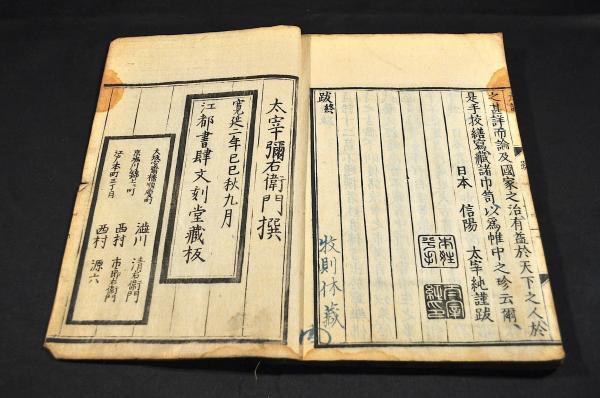 之甚詳而論及國家之治有益於天下之人於
是手校繕寫藏諸巾笥以爲帷中之珍云爾
日本 信陽 太宰純謹跋
跋終
牧則休藏
太宰彌右衛門撰
寛延二年己巳秋九月
江都書肆文刻堂藏板
大坂心齋橋順慶町
澁川清右衛門
京堀川錦上ル町
西村市郎右衛門
江戸本町三丁目
西村源六